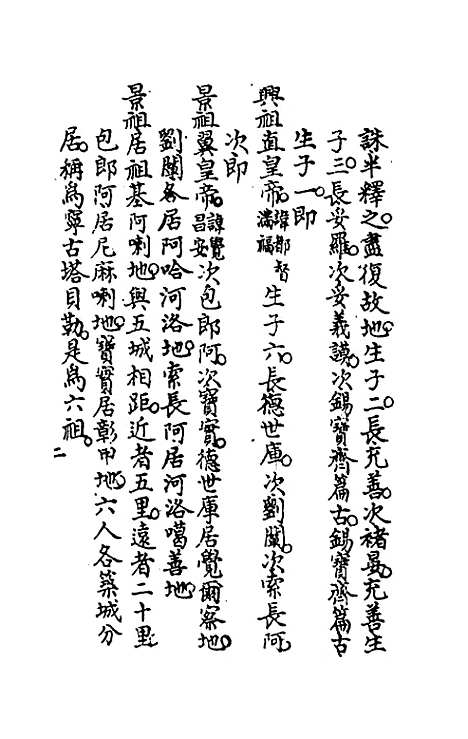 誅半釋之。盡復故地。生子二。長充善。次褚晏。充善生
子三。長妥羅。次妥義謨。次錫寶齊篇古。錫寶齊篇古
生子一。即
興祖直皇帝。諱都督滿福生子六。長德世庫。次劉闡。次索長阿。
次即
景祖翼皇帝。諱覺昌安次包郎阿。次寶實。德世庫居覺爾察地。
劉闡居阿哈河洛地。索長阿居河洛噶善地
景祖居祖基阿喇地。與五城相距。近者五里。遠者二十里
包郎阿居尼麻喇地。寶實居彰甲地。六人各築城分
居。稱為寧古塔貝勒。是為六祖。
二